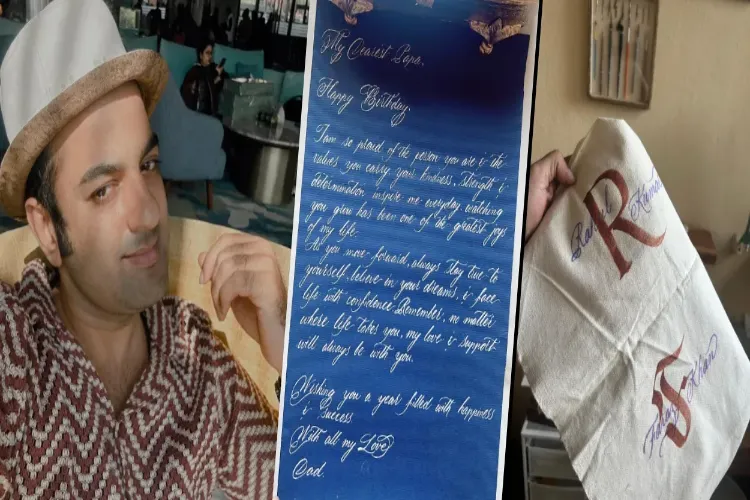 My Dearest Papa.
Happy Birthday.
I am so proud of the person you are & the
values you carry your kindness, strength &
determination inspire me everyday watching
you grow has been one of the greatest joys
of my life.
As you move forward, always stay true to
yourself, believe in your dreams, & face
life with confidence. Remember, no matter
where life takes you, my love & support
will always be with you.
Wishing you a year filled with happiness
& success
With all my Love
Dad.
R
F
Khan